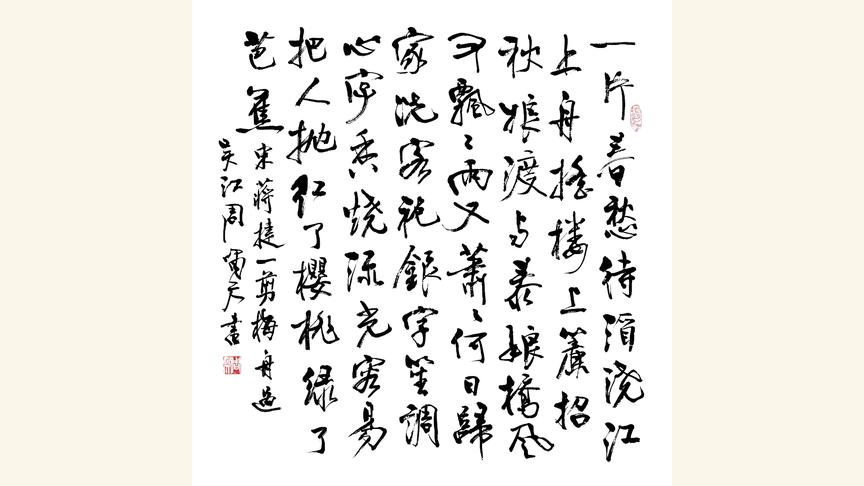 一片春愁待酒浇江
上舟摇楼上簾招
秋娘渡与泰娘橋风
又飄〻雨又蕭〻何日歸
家洗客袍銀字笙調
心字香烧流光容易
把人抛红了櫻桃绿了
芭蕉
宋蒋捷一剪梅舟过
吴江周天書